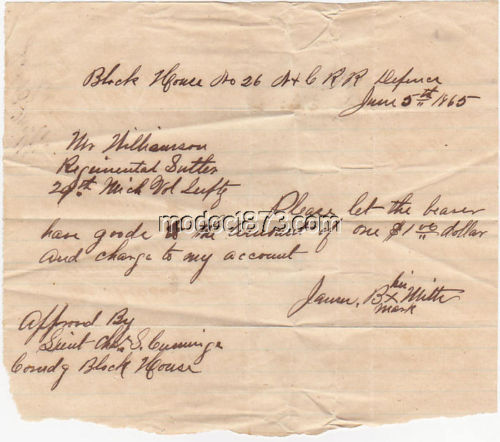 Block House No 26 N & C R R Defence
June 5th 1865
Mr Williamson
Regimental Sutler
29th Mich Vol Infty
Please let the bearer
have goods to the amount of one $1 00 dollar
and charge to my account
modoc1873.com
his
James B x
mark
Approved By
Lieut Chas S. Cummings
Comdg Block House